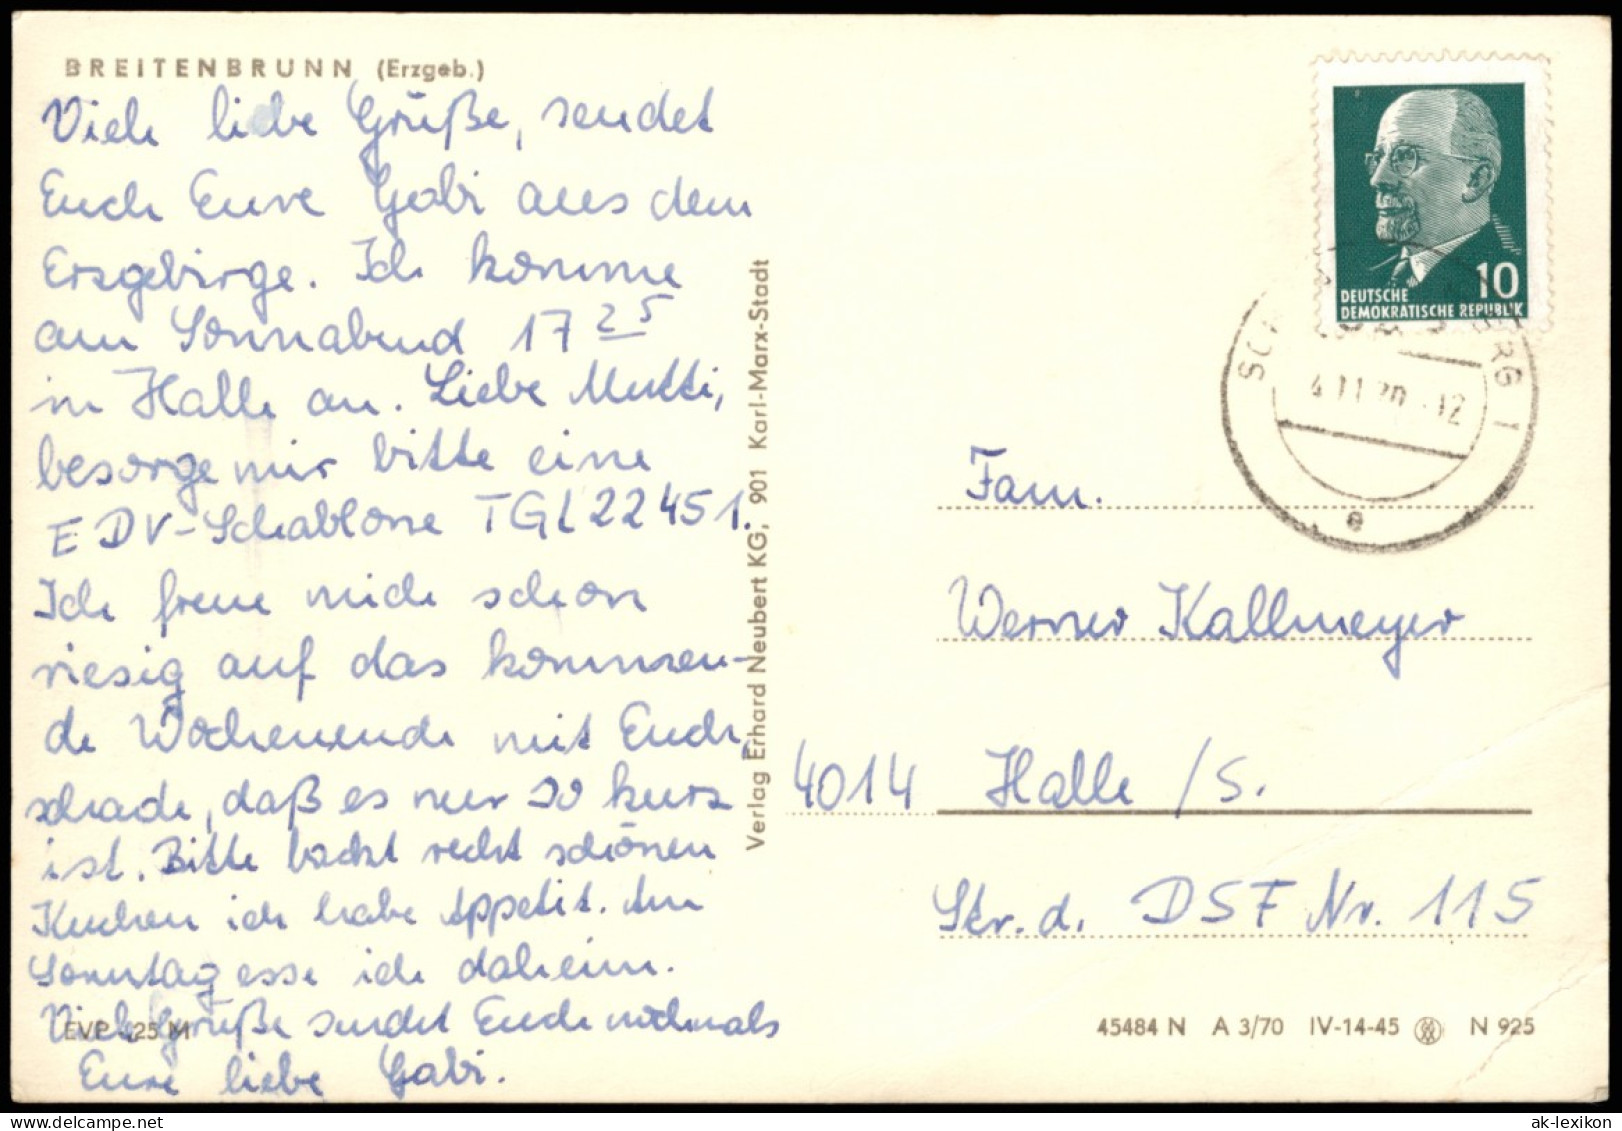 BREITENBRUNN (Erzgeb.)
Viele liebe Grüße, sendet
Euch Eure Gabi aus dem
Erzgebirge. Ich komme
am Sonnabend 17 25
in Halle an. Liebe Mutti,
besorge mir bitte eine
EDV-Schablone TGL 22451.
Ich freue mich schon
riesig auf das kommen-
de Wochenende mit Euch,
schade, daß es nur so kurz
ist. Bitte backt recht schönen
Kuchen ich habe Appetit. Am
Sonntag esse ich daheim.
Viele Grüße sendet Euch nochmals
Eure liebe Gabi.
EVP -,25 M
Verlag Erhard Neubert KG, 901 Karl-Marx-Stadt
10
DEUTSCHE
DEMOKRATISCHE REPUBLIK
BERG 1
4.11.70-12
e
Fam.
Werner Kallmeyer
4014 Halle /S.
Str. d. DSF Nr. 115
45484 N A 3/70 IV-14-45 N 925
ak-lexikon